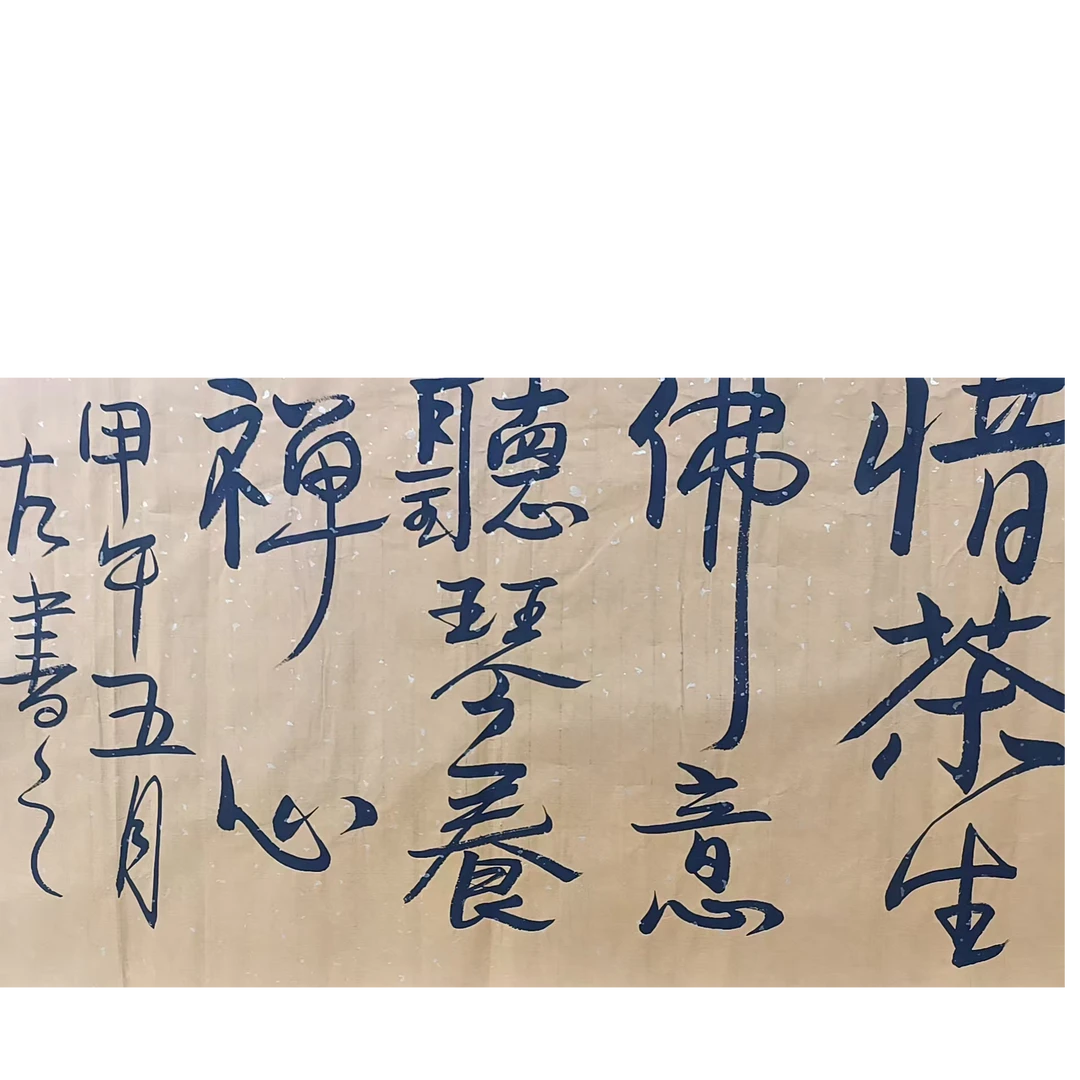 惜茶生
佛意
聽琴養
禪心
甲午五月
古書之